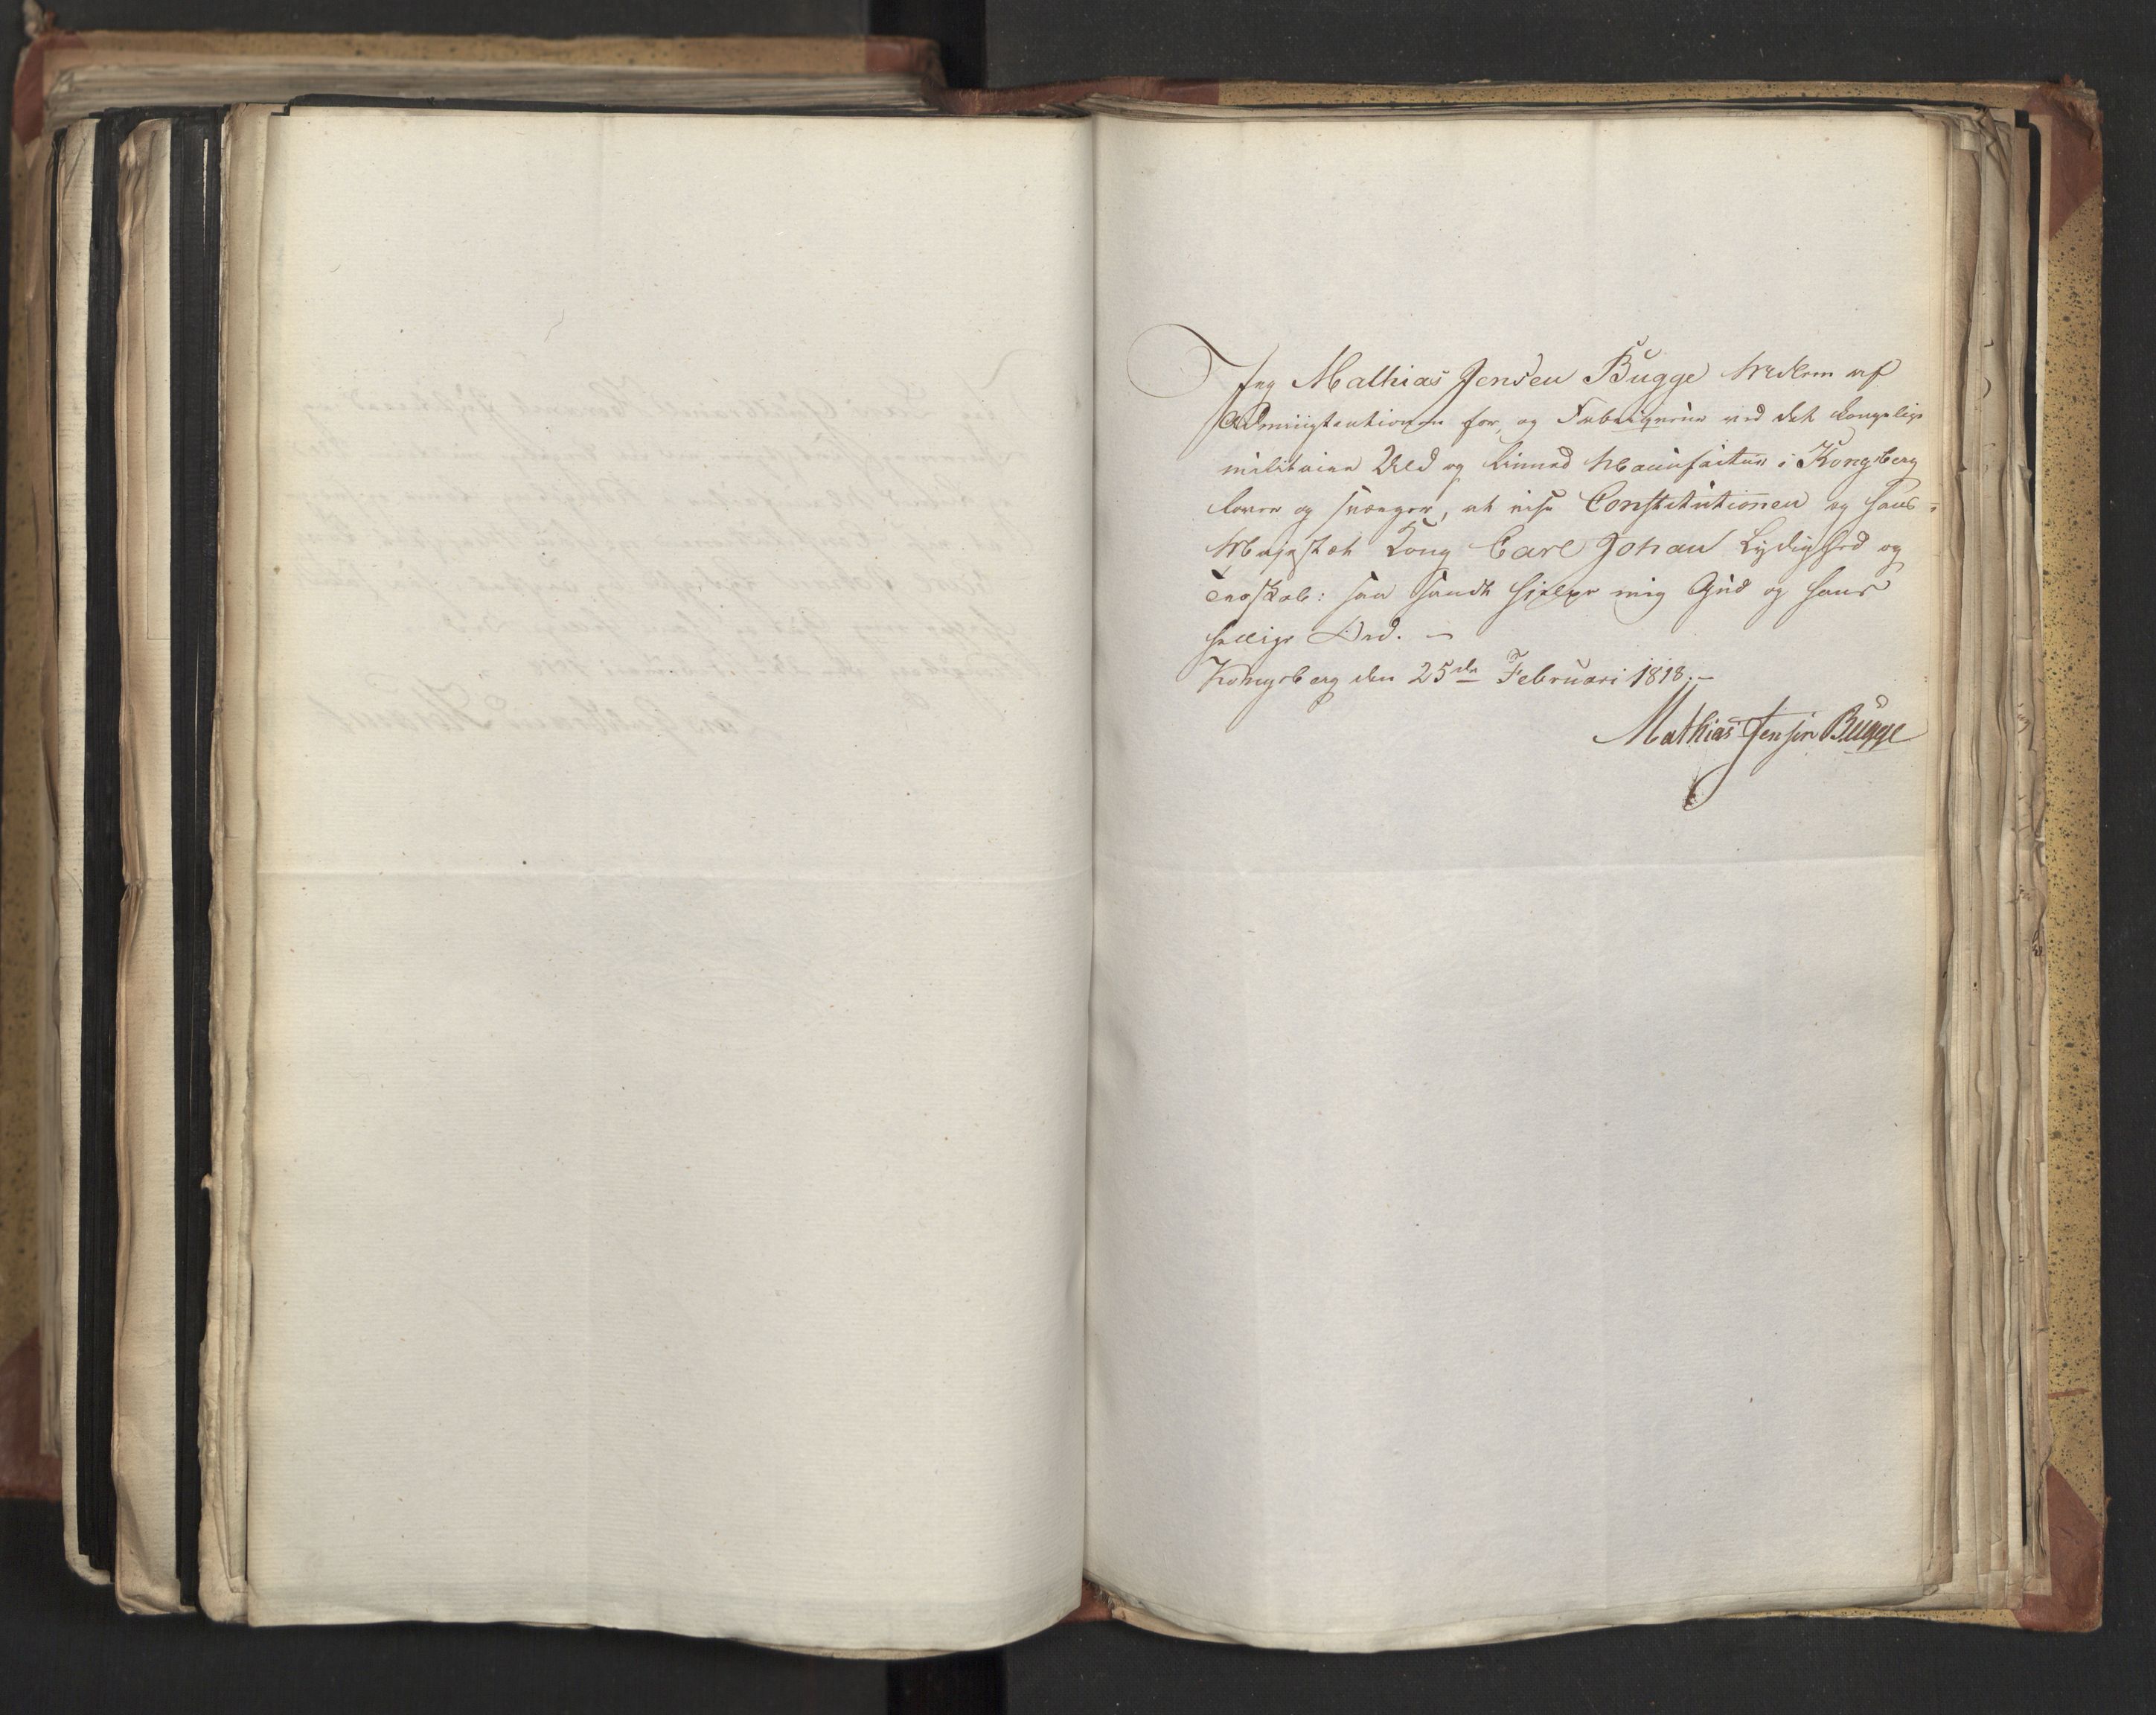 Jeg Mathias Jensen Bugge Medlem af
Administrationen for, og Fabriqueur ved det kongelige
militaire Uld og Linned Manufactur i Kongsberg
lover og sværger, at vise Constitutionen og Hans
Majestæt Kong Carl Johan Lydighed og
Troskab: saa sandt hjelpe mig Gud og hans
hellige Ord. –
Kongsberg den 25de Februari 1818. –
Mathias Jensen Bugge